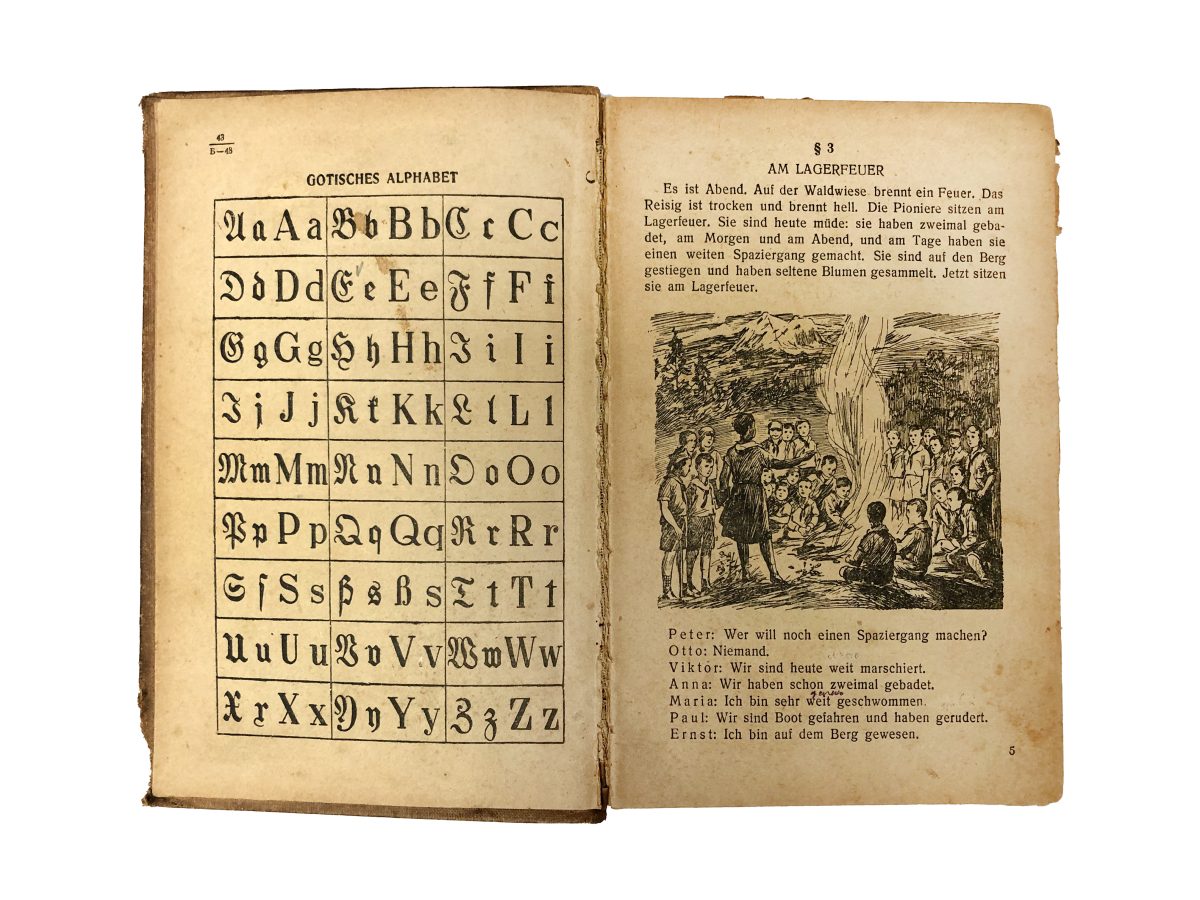 43
Б—48
GOTISCHES ALPHABET
Aa Aa Bb Bb Cc Cc
Dd Dd Ee Ee Ff Ff
Gg Gg Hh Hh Ii Ii
Jj Jj Kk Kk Ll Ll
Mm Mm Nn Nn Oo Oo
Pp Pp Qq Qq Rr Rr
Sſ Ss ßs ßs Tt Tt
Uu Uu Vv Vv Ww Ww
Xx Xx Yy Yy Zz Zz
§ 3
AM LAGERFEUER
Es ist Abend. Auf der Waldwiese brennt ein Feuer. Das
Reisig ist trocken und brennt hell. Die Pioniere sitzen am
Lagerfeuer. Sie sind heute müde: sie haben zweimal geba-
det, am Morgen und am Abend, und am Tage haben sie
einen weiten Spaziergang gemacht. Sie sind auf den Berg
gestiegen und haben seltene Blumen gesammelt. Jetzt sitzen
sie am Lagerfeuer.
Peter: Wer will noch einen Spaziergang machen?
Otto: Niemand.
Viktor: Wir sind heute weit marschiert.
Anna: Wir haben schon zweimal gebadet.
Maria: Ich bin sehr weit geschwommen.
Paul: Wir sind Boot gefahren und haben gerudert.
Ernst: Ich bin auf dem Berg gewesen.
5